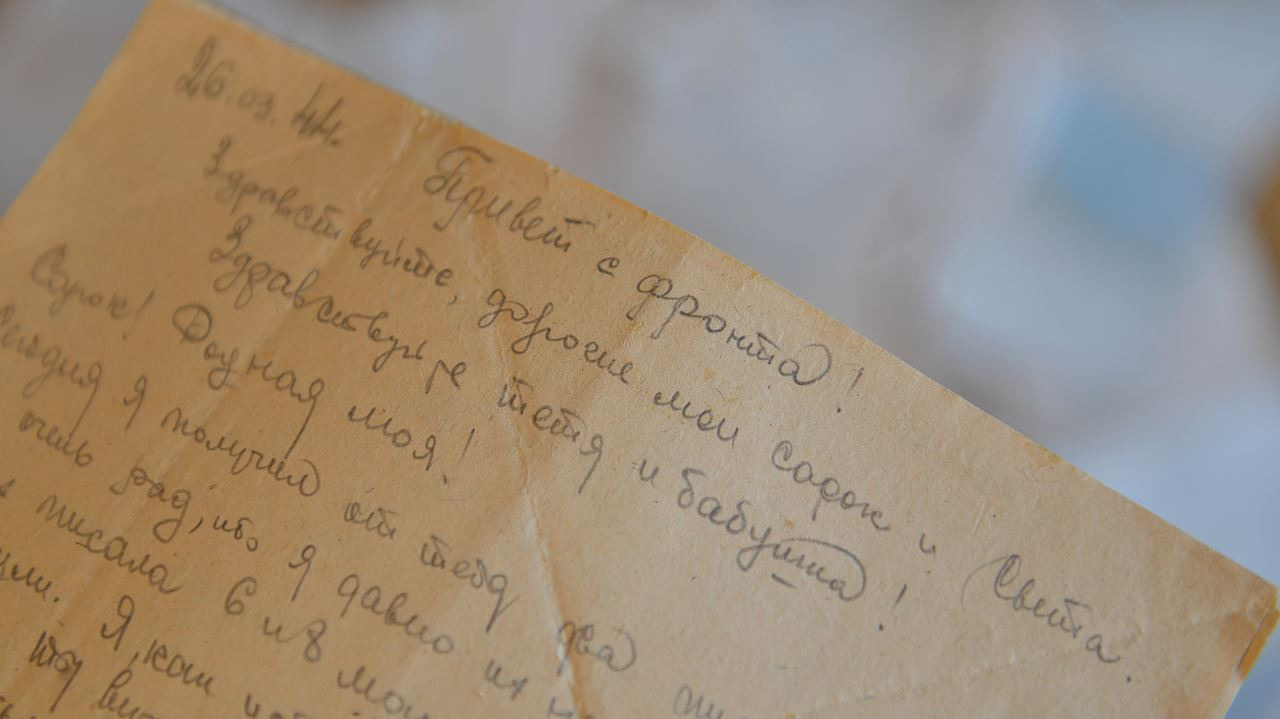 26.03.44.
Привет с фронта!
Здравствуйте, дорогие мои сорок и Света.
Здравствуйте тетя и бабушка!
Сорок! Родная моя!
Сегодня я получил от тебя два
очень рад, что я давно их
писала 6 и 8
Я, как